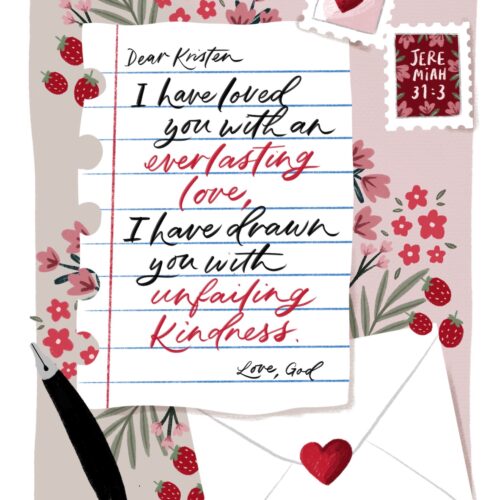 Dear Kristen
I have loved
you with an
everlasting
love,
I have drawn
you with
unfailing
kindness.
Love, God
JERE
MIAH
31:3